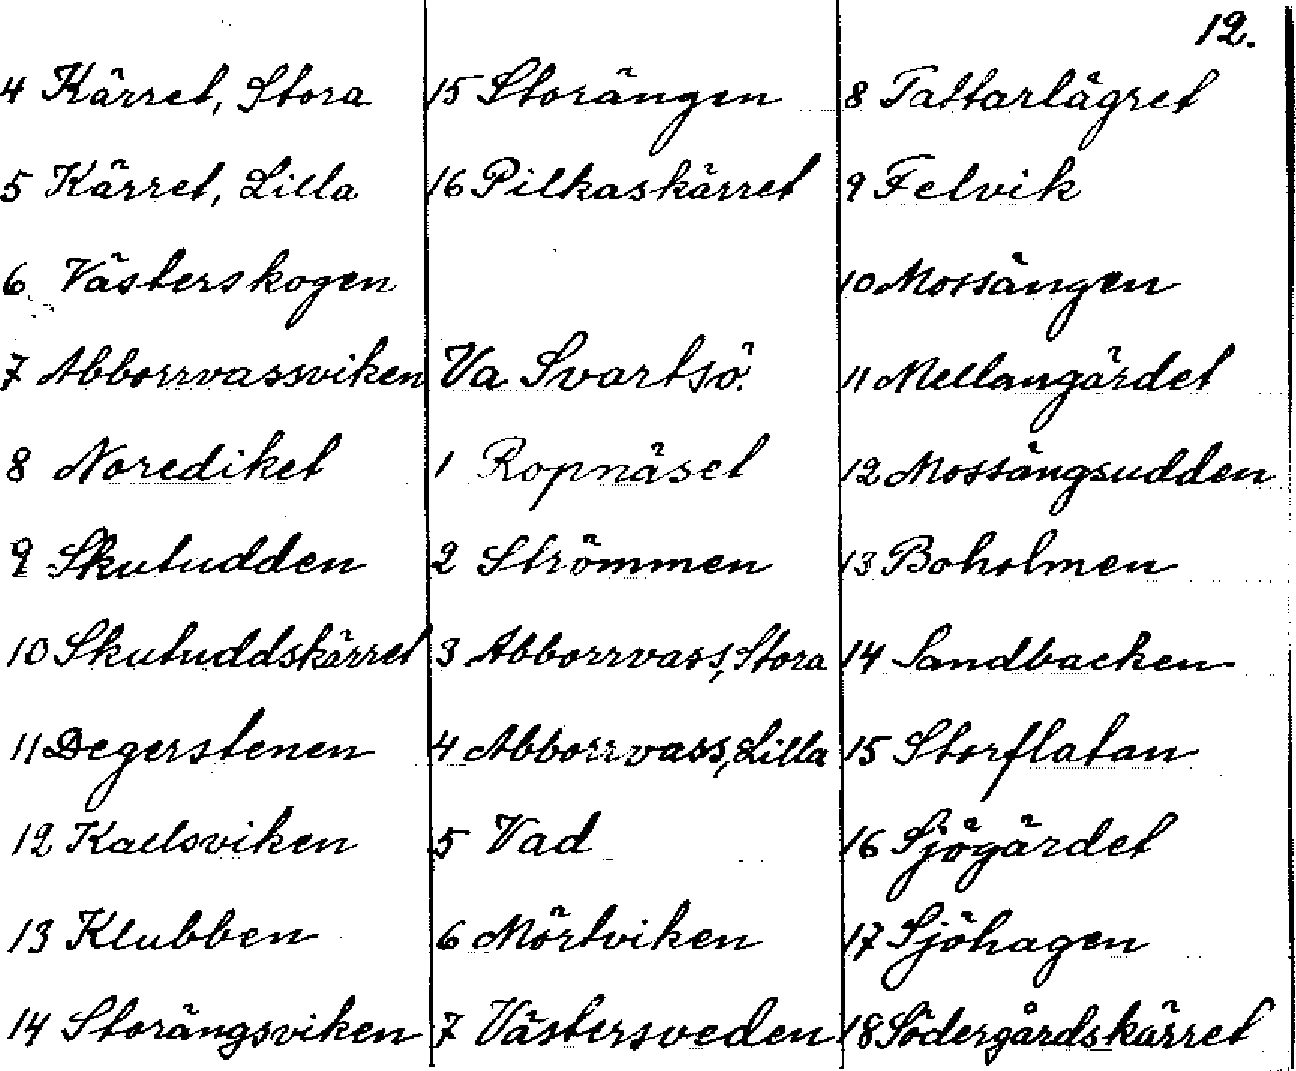 12.
4 Kärret, Stora
5 Kärret, Lilla
6 Västerskogen
7 Abborrvassviken
8 Norediket
9 Skutudden
10 Skutuddskärret
11 Degerstenen
12 Kallsviken
13 Klubben
14 Storängsviken
15 Storängen
16 Pilkaskärret
Va Svartsö.
1 Ropnäset
2 Strömmen
3 Abborrvass, Stora
4 Abborrvass, Lilla
5 Vad
6 Mörtviken
7 Västersveden
8 Tattarlägret
9 Felvik
10 Mossängen
11 Mellangärdet
12 Mossängsudden
13 Boholmen
14 Sandbacken
15 Storflatan
16 Sjögärdet
17 Sjöhagen
18 Södergårdskärret